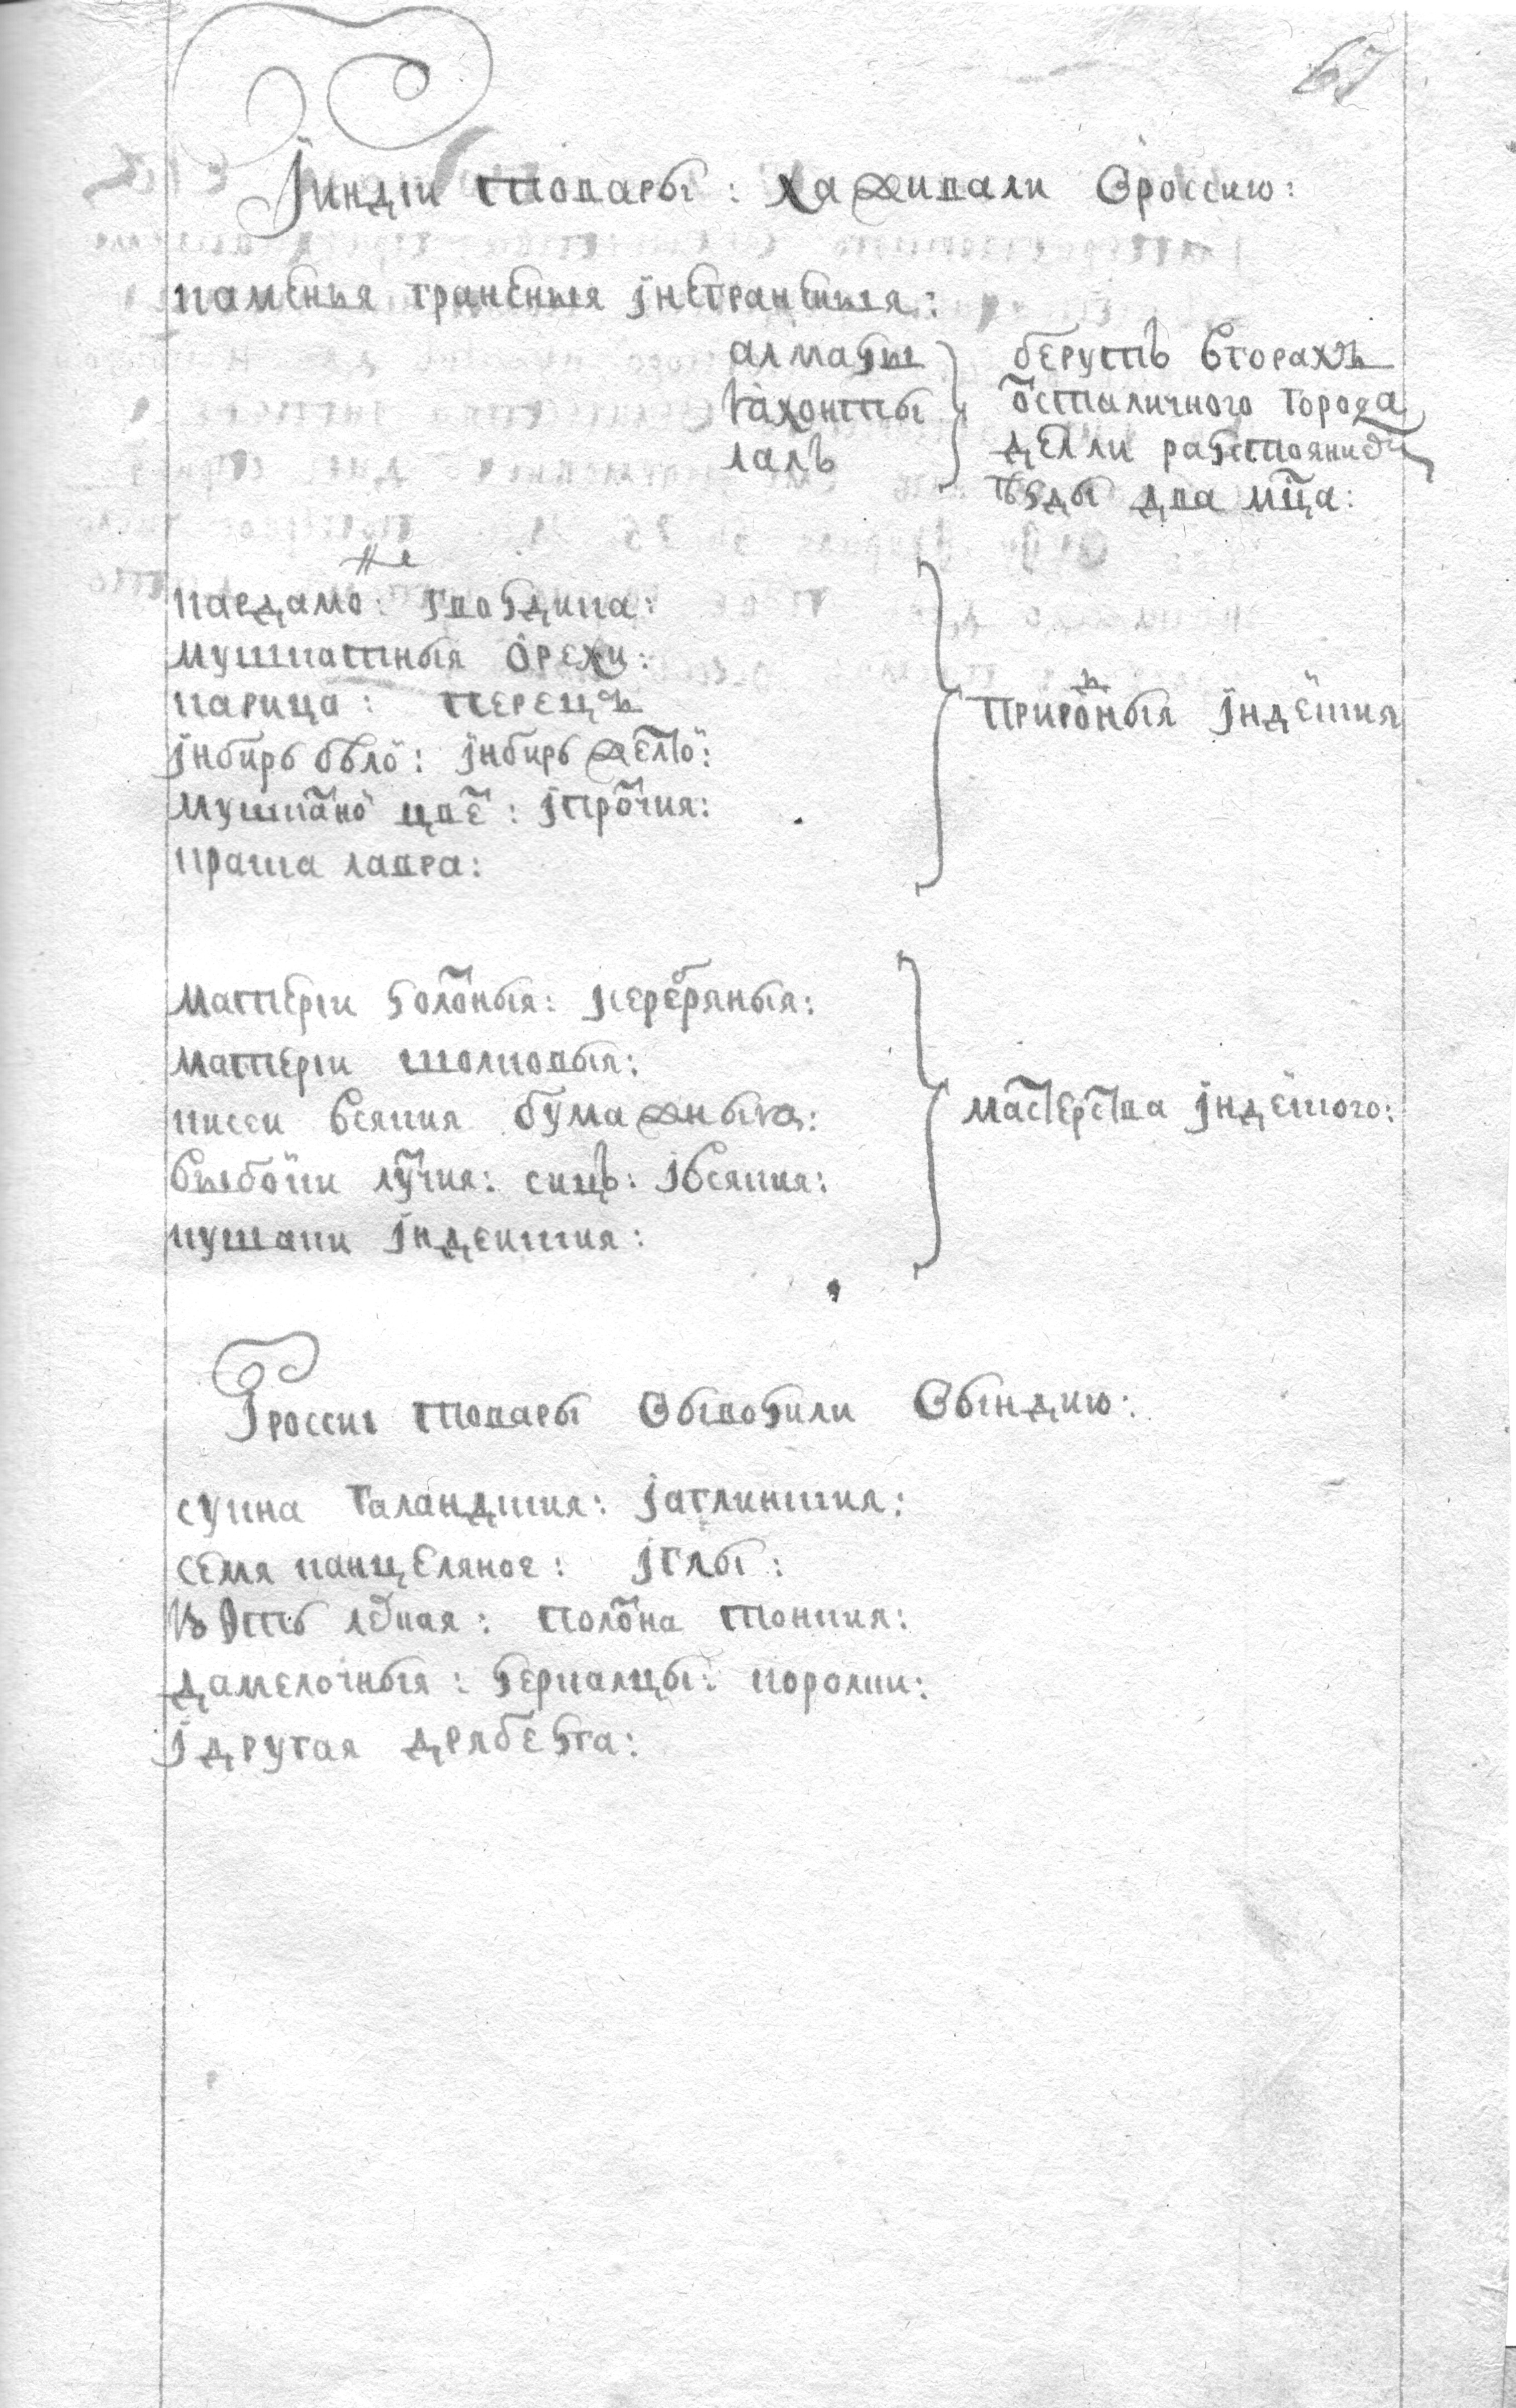 67
Jиндiи товары: хаживали вроссию:
каменья граненыя jнеграненыя:
алмазы
яхонты
лалъ
берутъ вгорахъ
ѿсталичного города
делли разстояниемъ
ѣзды два мц̃а:
не
кардамо: гвоздика:
мушкатныя орехи:
карица: перецъ
jнбирь бѣлō: jнбирь желтō:
мушкāнō цвē: jпрочия:
краша лавра:
прирōныя jндēския
матерiи золōныя: jсеребряныя:
материи шолковыя:
кисеи всякия бумажныя:
выбōки лўчия: сицъ: jвсякия:
кушаки jндеиския:
мастерства jндēского:
Jроссиi товары вывозили вындию:
сукна галандския: jаглинския:
семя канцеляное: jглы:
полōна тонкия:
дамелочныя: зеркалцы: королки:
jдругая дрябезга: